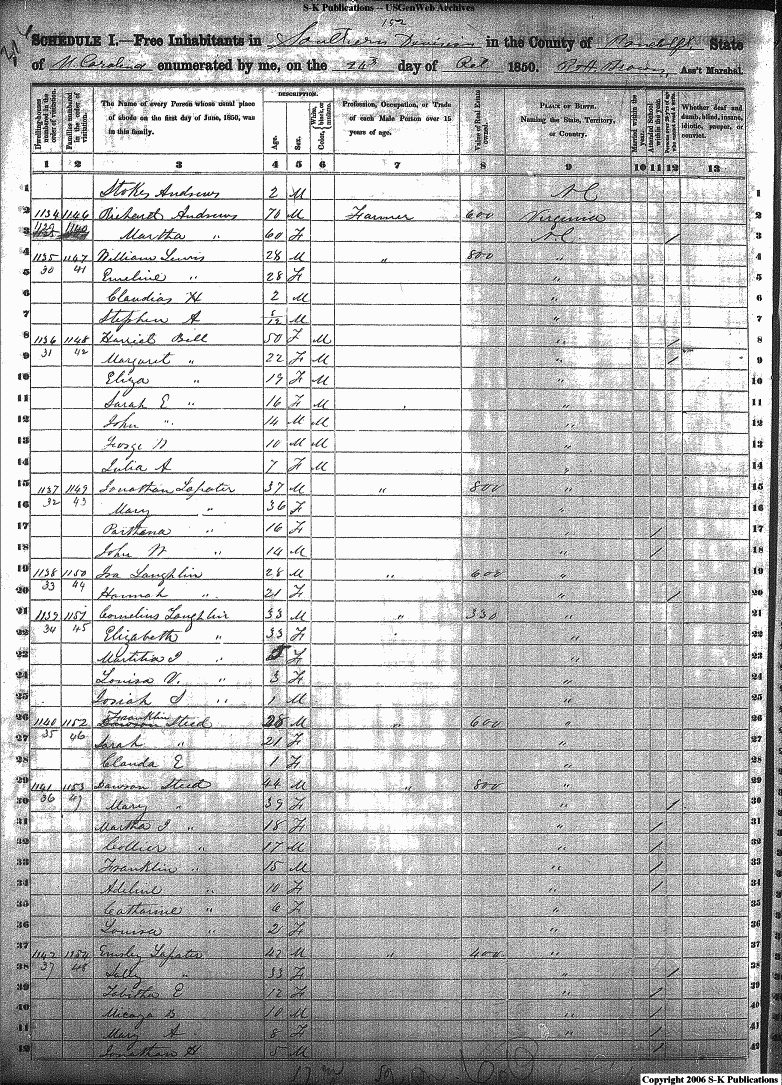 S-K Publications -- USGenWeb Archives
152
SCHEDULE I.—Free Inhabitants in Southern Division in the County of Randolph State
of N Carolina enumerated by me, on the 24th day of Oct 1850. Ass't Marshal.
Dwelling-houses numbered in the order of visitation. Families numbered in the order of visitation. The Name of every Person whose usual place of abode on the first day of June, 1850, was in this family. DESCRIPTION. Age. Sex. Color, White, black, or mulatto. Profession, Occupation, or Trade of each Male Person over 15 years of age. Value of Real Estate owned. PLACE OF BIRTH. Naming the State, Territory, or Country. Married within the year. Attended School within the year. Persons over 20 y'rs of age who cannot read & write. Whether deaf and dumb, blind, insane, idiotic, pauper, or convict.
1 2 3 4 5 6 7 8 9 10 11 12 13
1 Stokes Andrews 2 M N C 1
2 1134 1146 Richard Andrews 70 M Farmer 600 Virginia 2
3 Martha " 60 F N.C. / 3
4 1135 1147 William Lewis 28 M " 800 " 4
5 30 41 Emeline " 28 F " 5
6 Claudias H 2 M " 6
7 Stephen A 5/12 M " 7
8 1136 1148 Harriet Bell 50 F M " / 8
9 31 42 Margaret " 22 F M " / 9
10 Eliza " 19 F M " 10
11 Sarah E " 16 F M " 11
12 John " 14 M M " 12
13 George W 10 M M " 13
14 Julia A 7 F M " 14
15 1137 1149 Jonathan Lapater 37 M " 800 " 15
16 32 43 Mary " 36 F " 16
17 Parthena " 16 F " / 17
18 John W " 14 M " / 18
19 1138 1150 Ira Laughlin 28 M " 600 " 19
20 33 44 Hannah " 21 F " / 20
21 1139 1151 Cornelius Laughlin 33 M " 330 " 21
22 34 45 Elizabeth " 33 F " 22
23 Martitia J " 5 F " 23
24 Louisa V. " 3 F " 24
25 Josiah S " 1 M " 25
26 1140 1152 Franklin Steed 28 M " 600 " 26
27 35 46 Sarah " 21 F " 27
28 Clauda E 1 F " 28
29 1141 1153 Dawson Steed 44 M " 800 " 29
30 36 47 Mary " 39 F " / 30
31 Martha J " 18 F " / 31
32 Collier " 17 M " / 32
33 Franklin " 15 M " / 33
34 Adeline " 10 F " / 34
35 Catharine " 6 F " 35
36 Louisa " 2 F " 36
37 1142 1154 Emsley Lapater 42 M " 400 " 37
38 37 48 Sally " 33 F " / 38
39 Tabitha E 12 F " / 39
40 Micaga B 10 M " / 40
41 Mary A 8 F " / 41
42 Jonathan H 5 M " / 42
Copyright 2006 S-K Publications